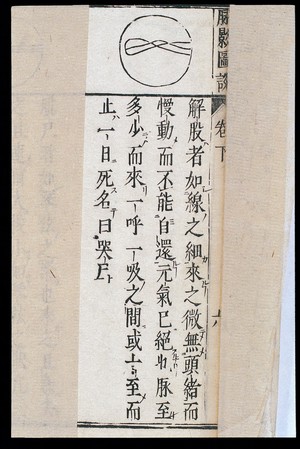 脉影圖說 卷下 六
解股者如線之細來之微無頭緒而
慢動而不能自還元氣已絕也脉至
多少而來一呼一吸之間或上至而
止一日死名曰哭尸